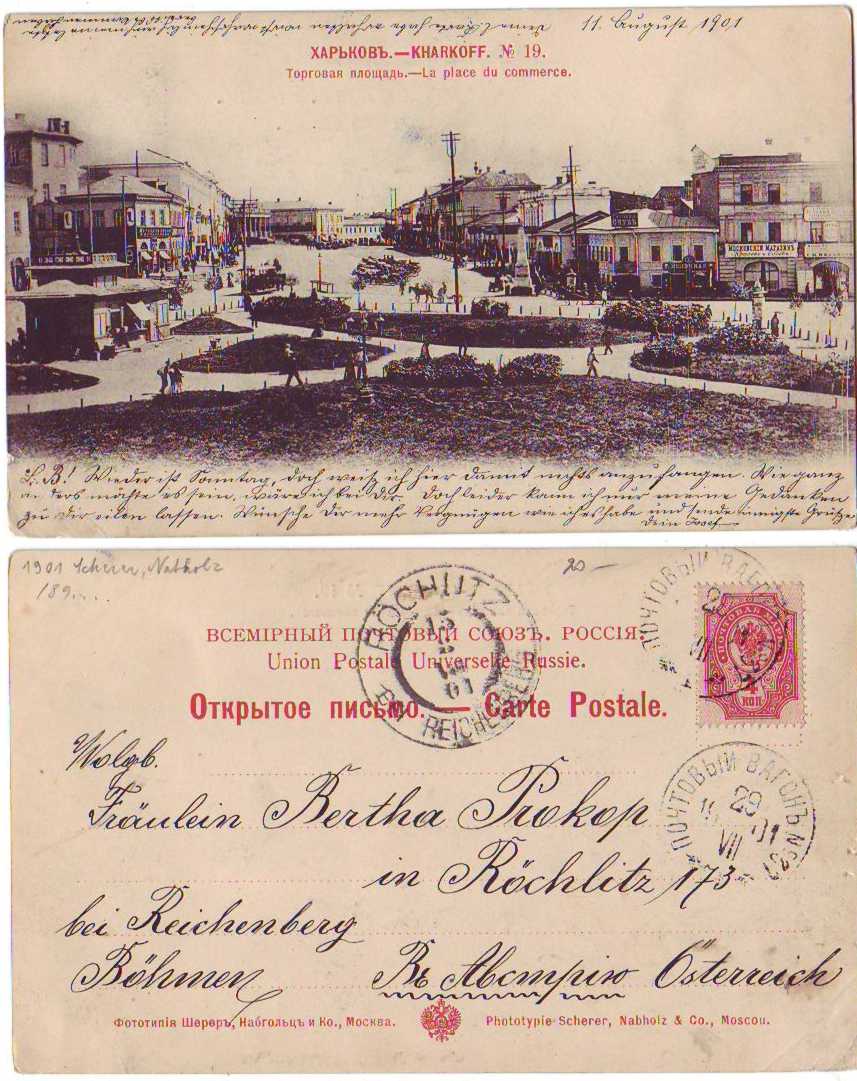 11. August 1901
ХАРЬКОВЪ.—KHARKOFF. № 19.
Торговая площадь.—La place du commerce.
МОСКОВСКІЙ МАГАЗИНЪ
L. B! Wieder ist Sonntag, doch weiß ich hier damit nichts anzufangen. Wie ganz
anders möchte es sein, wäre ich bei Dir. Doch leider kann ich nur meine Gedanken
zu Dir eilen lassen. Wünsche Dir mehr Vergnügen wie ich es habe und sende innigste Grüße
Dein Josef
1901 Scherer, Nabholz
189...
20 —
RÖCHLITZ
BEI REICHENBERG
15
8
01
ПОЧТОВЫЙ ВАГОНЪ
ПОЧТОВАЯ МАРКА
4
КОП
ВСЕМІРНЫЙ ПОЧТОВЫЙ СОЮЗЪ. РОССІЯ.
Union Postale Universelle Russie.
Открытое письмо.— Carte Postale.
ПОЧТОВЫЙ ВАГОНЪ №
29
VII
Wolgb.
Fräulein Bertha Prokop
in Röchlitz 173
bei Reichenberg
Böhmen Въ Австрію Österreich
Фототипія Шереръ, Набгольцъ и Ко., Москва. Phototypie Scherer, Nabholz & Co., Moscou.